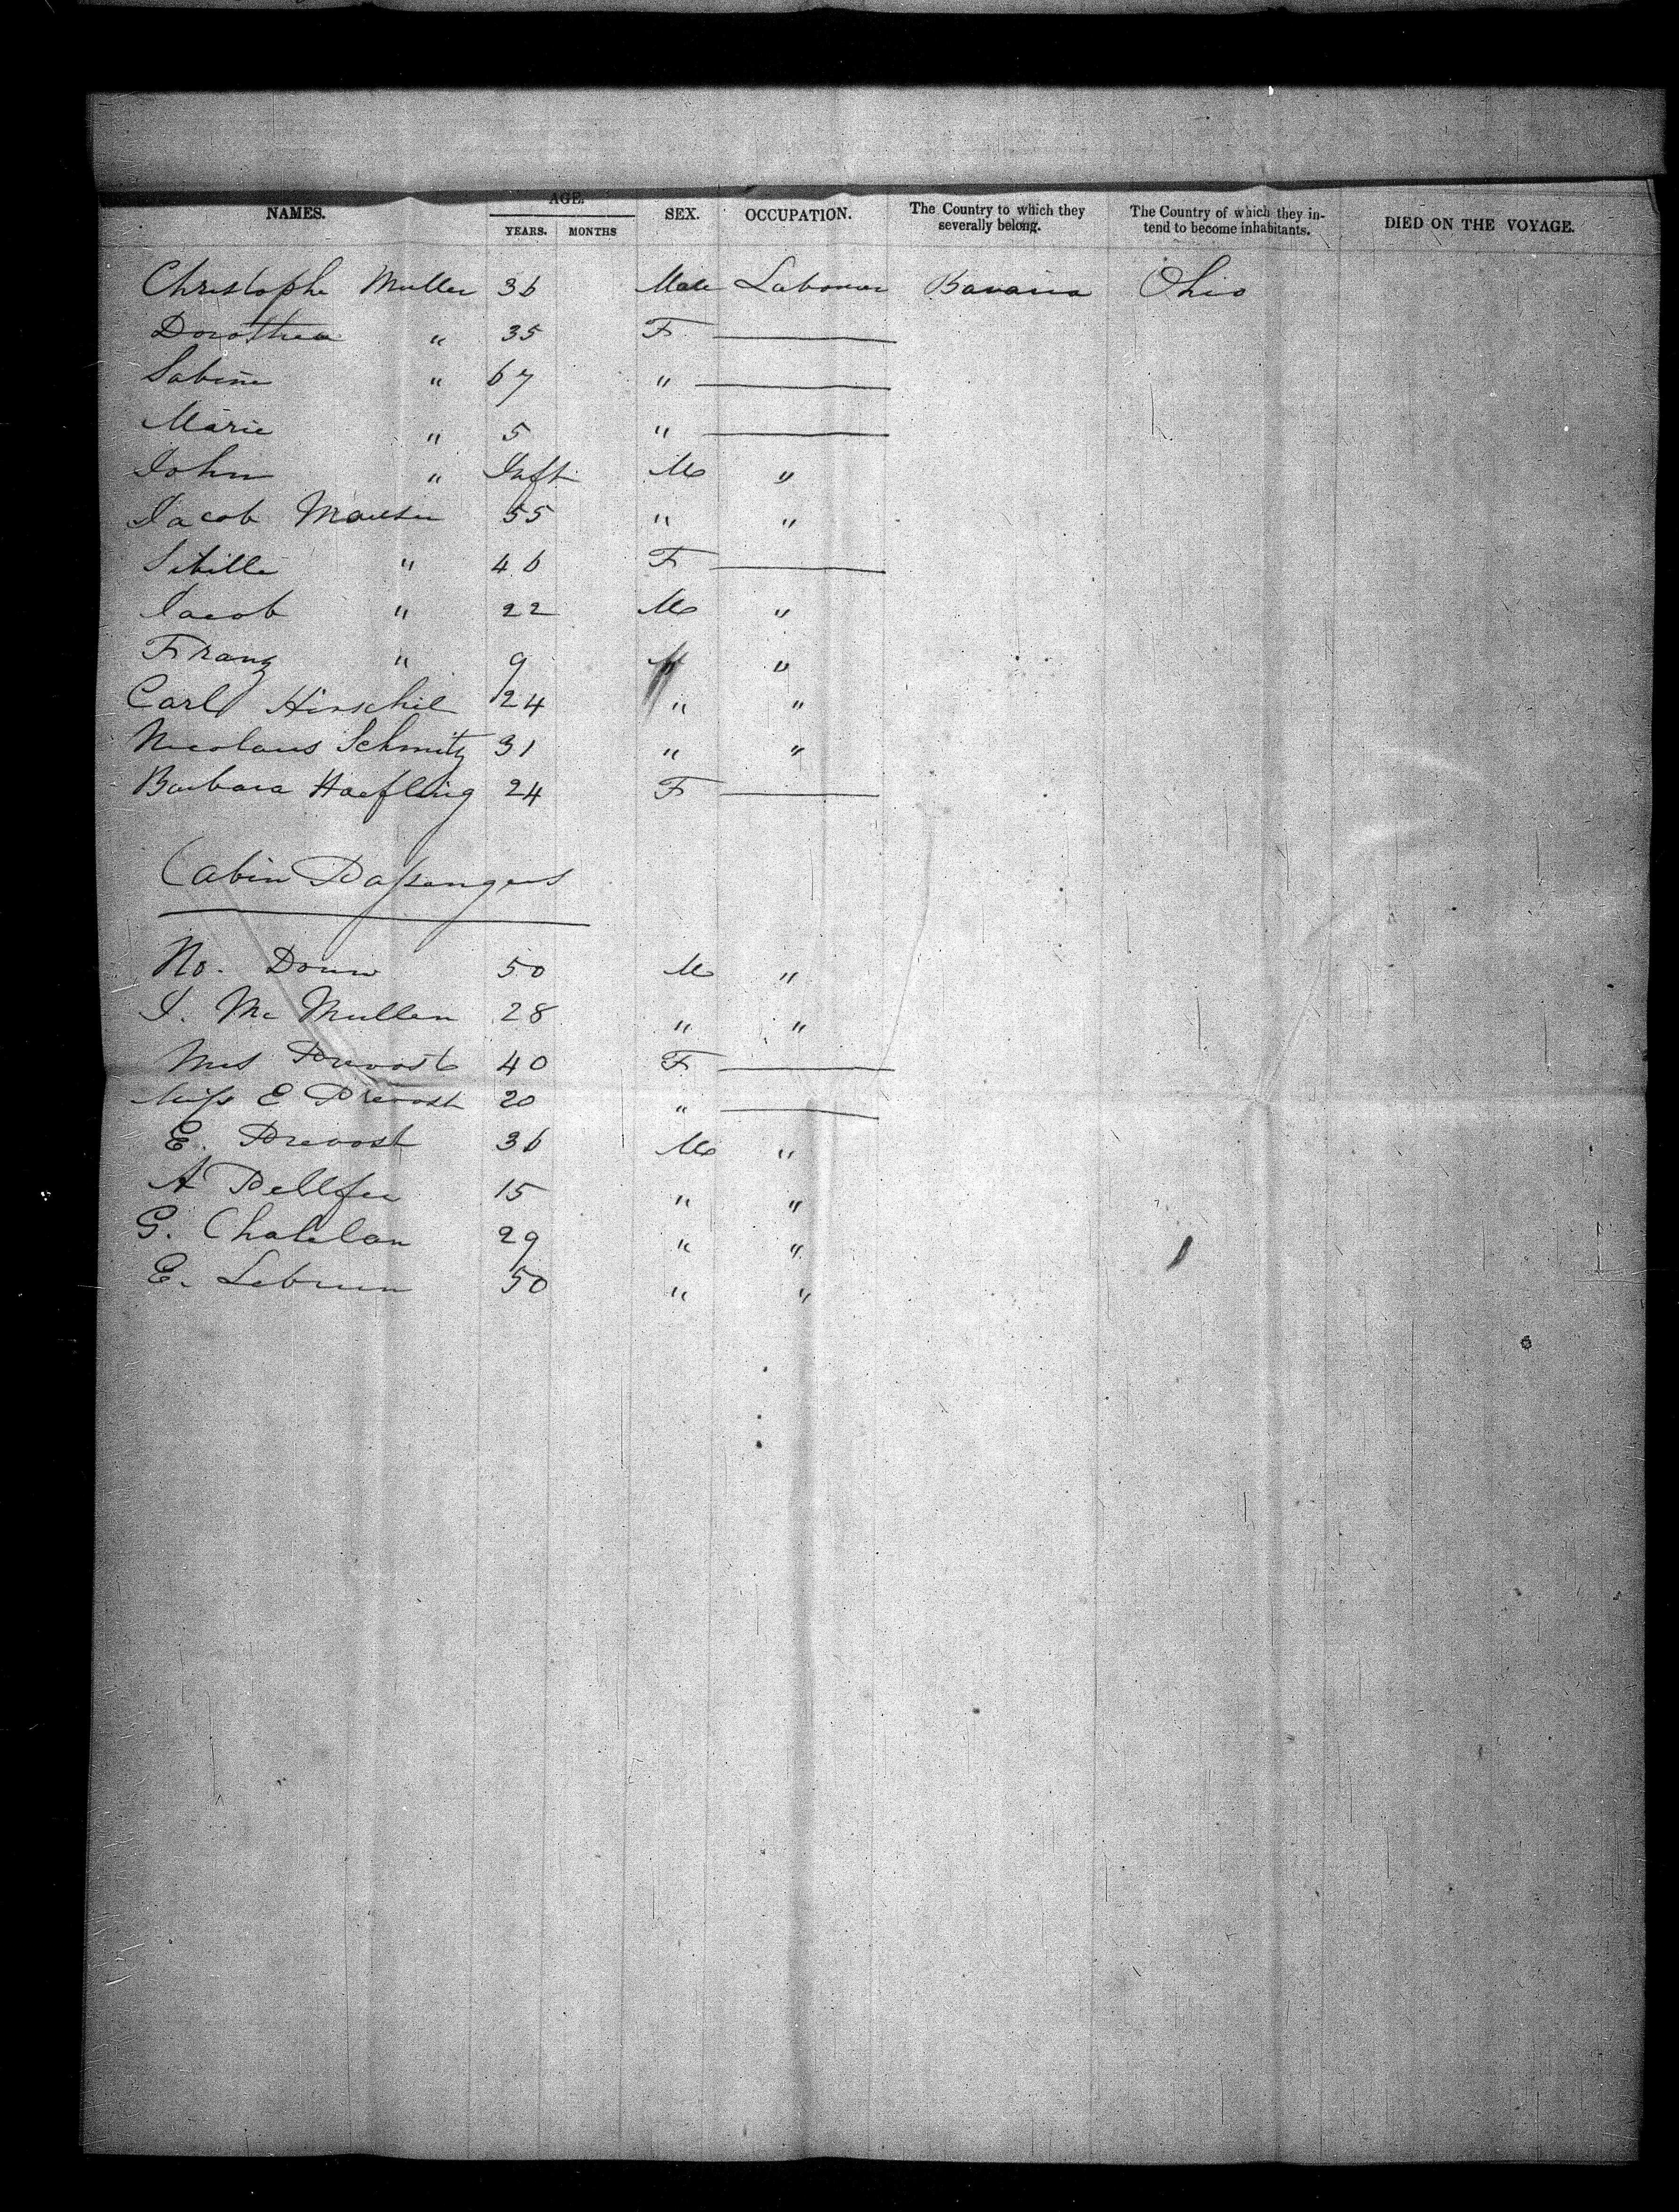 NAMES. AGE. YEARS. MONTHS SEX. OCCUPATION. The Country to which they severally belong. The Country of which they intend to become inhabitants. DIED ON THE VOYAGE.
Christophe Muller 36 Male Labourer Bavaria Ohio
Dorothea " 35 F
Sabine " 67 "
Marie " 5 "
John " Inft M "
Jacob 55 " "
Sibille " 46 F
Jacob " 22 M "
Franz " 9 " "
Carl 24 " "
Nicolaus Schmitz 31 " "
Barbara Haefling 24 F
Cabin Passengers
50 M "
J. Mc Mullen 28 " "
Mrs Prevost 40 F
Miss E Prevost 20 "
E. Prevost 36 M "
A 15 " "
G. Chatelan 29 " "
E. Lebrun 50 " "